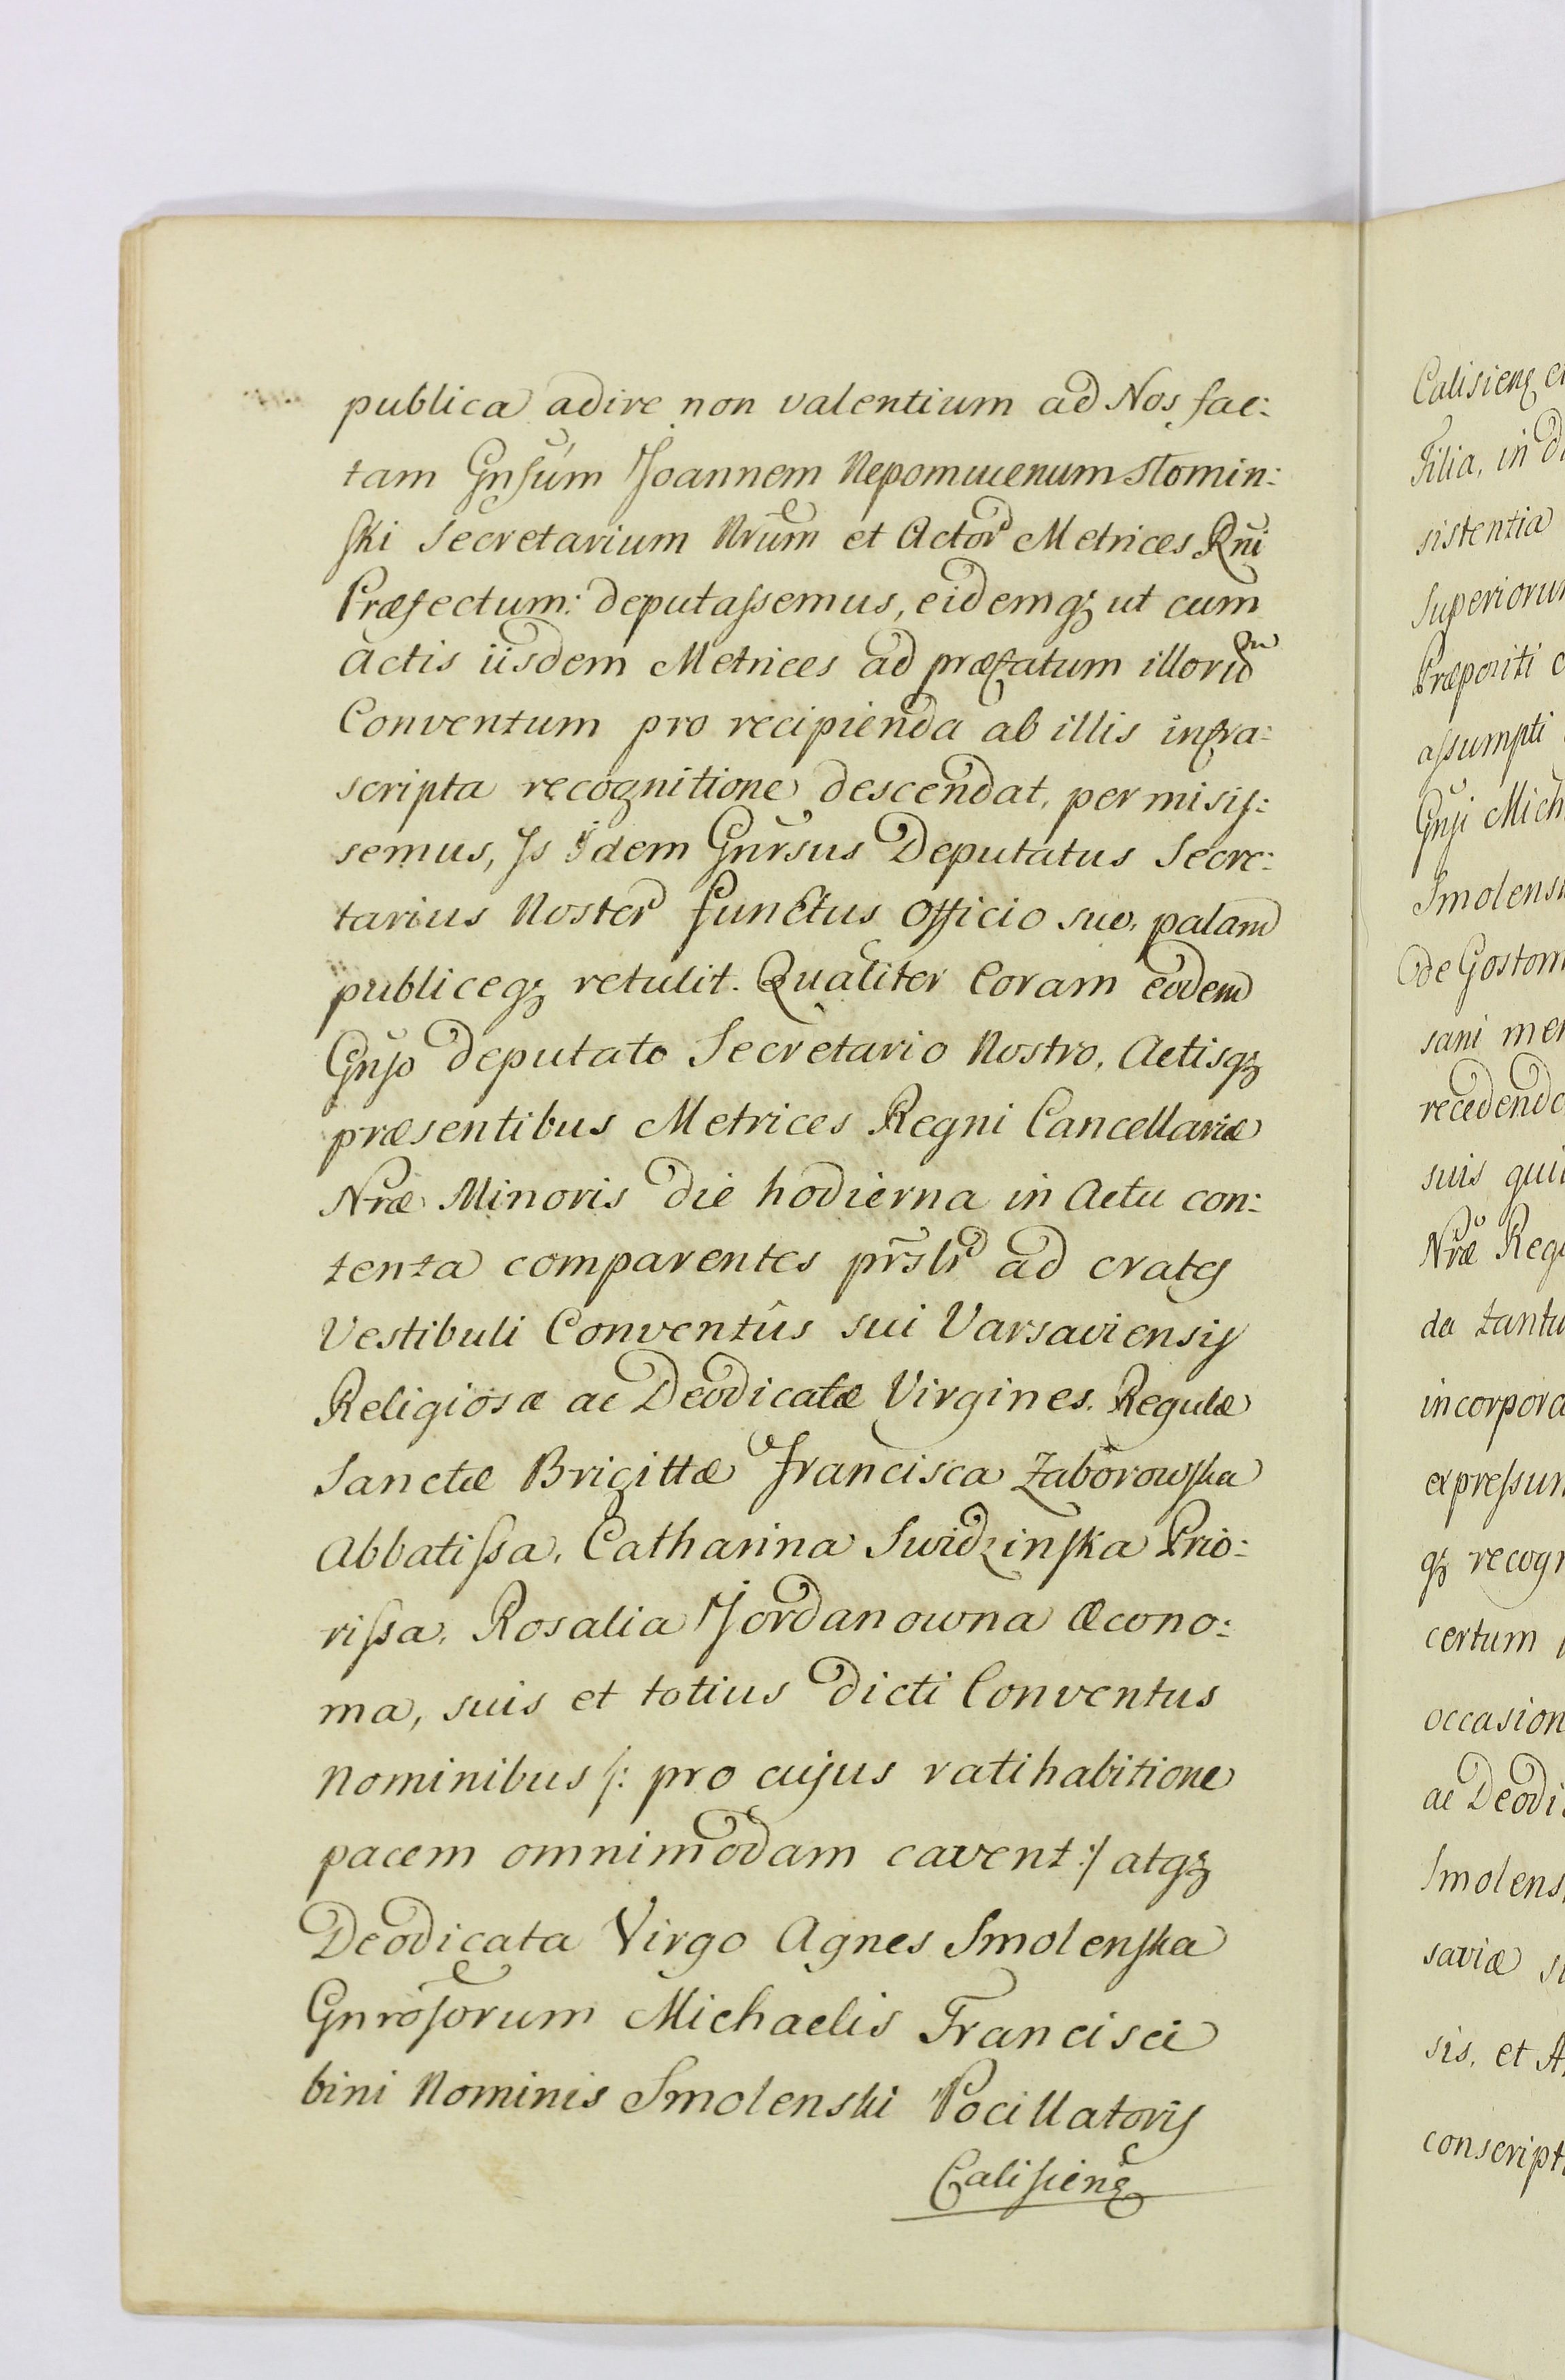 publica adire non valentium ad Nos fac:
tam Gnsum Joannem Nepomucenum Slomin:
ski Secretarium Nrum et Actor Metrices Rni
Præfectum: deputassemus, eidemq; ut cum
actis iisdem Metrices ad præfatum illorum
Conventum pro recipienda ab illis infra:
scripta recognitione descendat, permisis:
semus, Is Idem Gnrsus Deputatus Secre:
tarius Noster functus officio suo, palam
publiceq; retulit. Qualiter Coram eodem
Gnso deputato Secretario Nostro, Actisq;
præsentibus Metrices Regni Cancellariæ
Nræ Minoris die hodierna in Actu con:
tenta comparentes prslr ad crates
Vestibuli Conventûs sui Varsaviensis
Religiosæ ac Deodicatæ Virgines. Regulæ
Sanctæ Brigittæ Francisca Zaborowska
Abbatissa, Catharina Swidzinska Prio:
rissa, Rosalia Jordanowna Æcono:
ma, suis et totius dicti Conventus
Nominibus /: pro cujus ratihabitione
pacem omnimodam cavent :/ atq;
Deodicata Virgo Agnes Smolenska
Gnrosorum Michaelis Francisci
bini Nominis Smolenski Pocillatoris
Calisiens
Calisiens et
Filia, in
sistentia
Superiorum
Præpositi
assumpti
Gnsi Mich
Smolens
de Gostom
sani men
recedendo
suis qui
Nræ Reg
da tantu
incorpora
expressum
q; recogn
certum
occasion
ac Deodi
Smolens
saviæ
sis, et
conscript